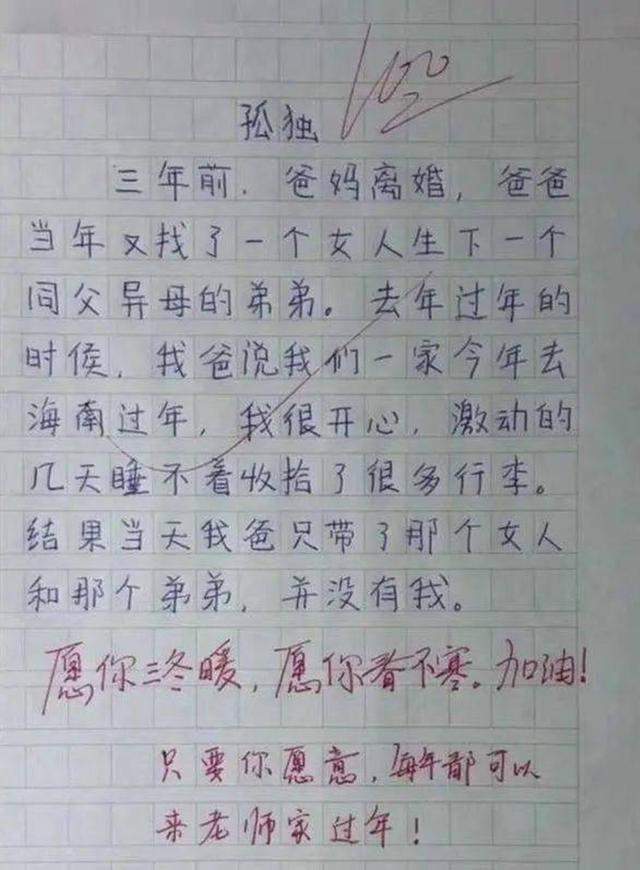 100
孤独
三年前,爸妈离婚,爸爸
当年又找了一个女人生下一个
同父异母的弟弟。去年过年的
时候,我爸说我们一家今年去
海南过年,我很开心,激动的
几天睡不着收拾了很多行李。
结果当天我爸只带了那个女人
和那个弟弟,并没有我。
愿你三冬暖,愿你春不寒。加油!
只要你愿意,每年都可以
来老师家过年!